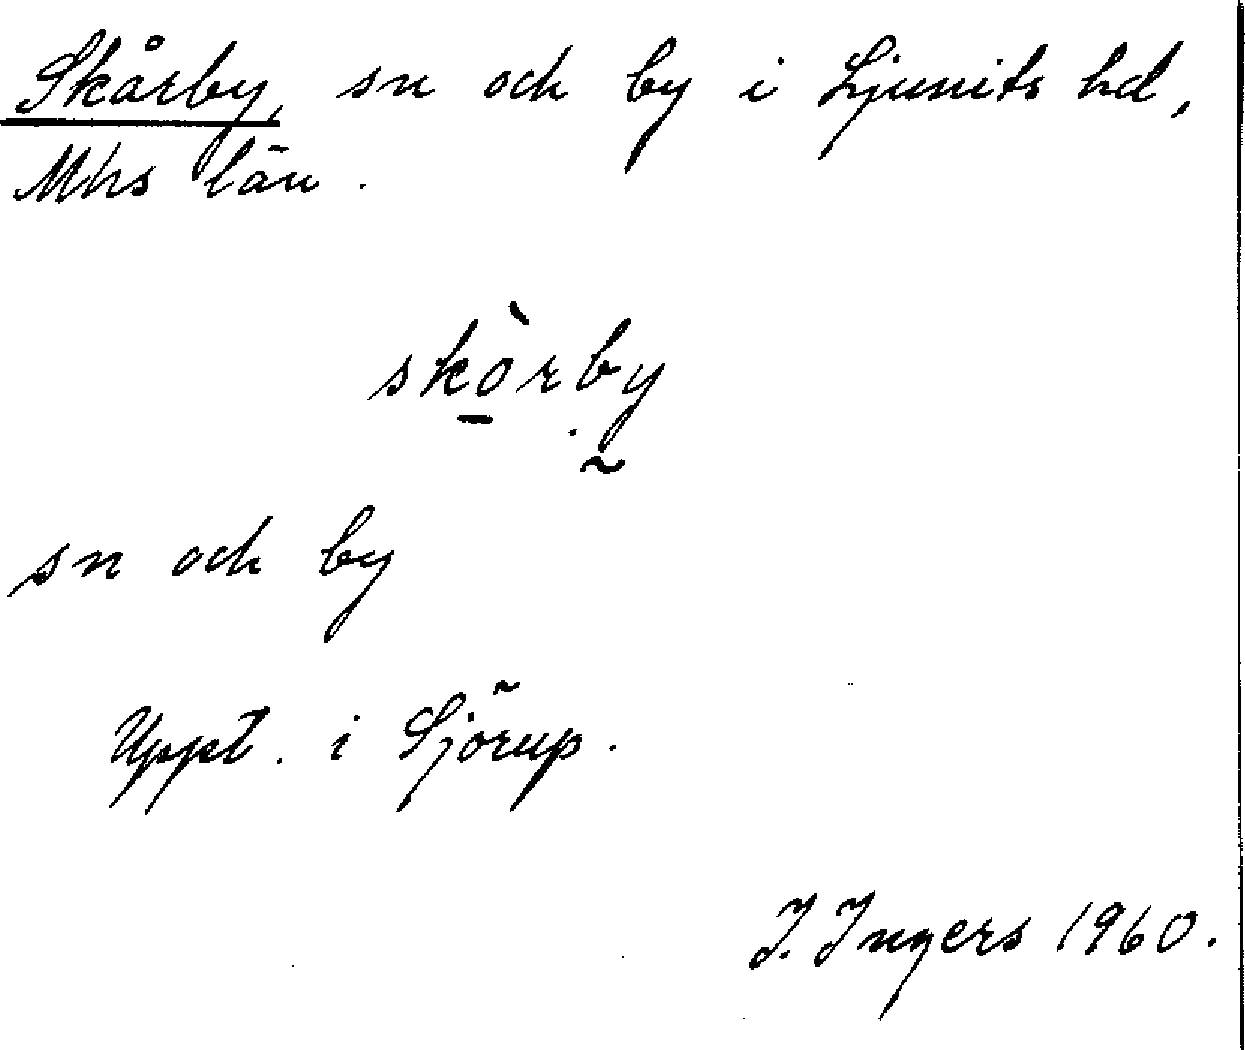 Skårby, sn och by i Ljunits hd,
Mhs län.
skò̱rby
sn och by
Uppt. i Sjörup.
I. Ingers 1960.